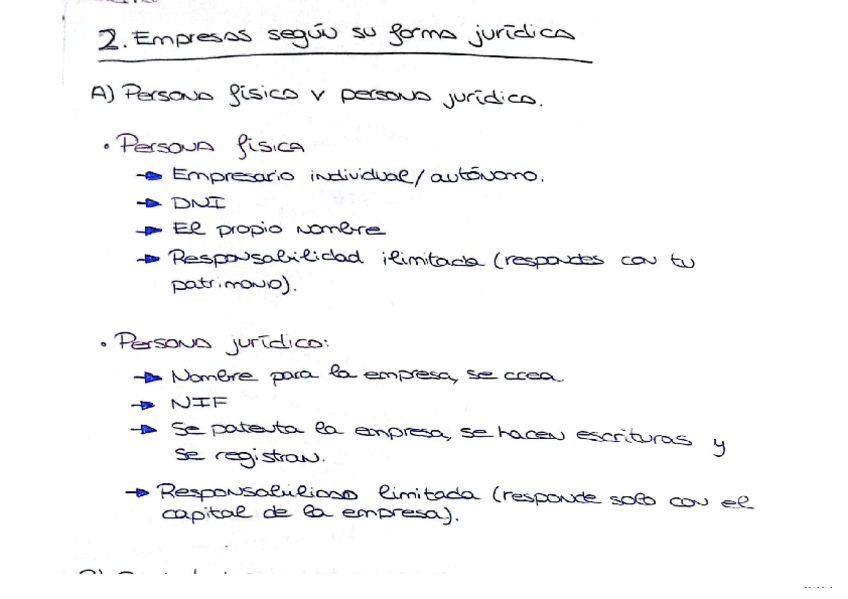 2. Empresas según su forma jurídica
A) Persona física v persona jurídica.
• Persona física
→ Empresario individual/autónomo.
→ DNI
→ El propio nombre
→ Responsabilidad ilimitada (respondes con tu
patrimonio).
• Persona jurídica:
→ Nombre para la empresa, se crea
→ NIF
→ Se patenta la empresa, se hacen escrituras y
se registran.
→ Responsabilidad limitada (responde solo con el
capital de la empresa).